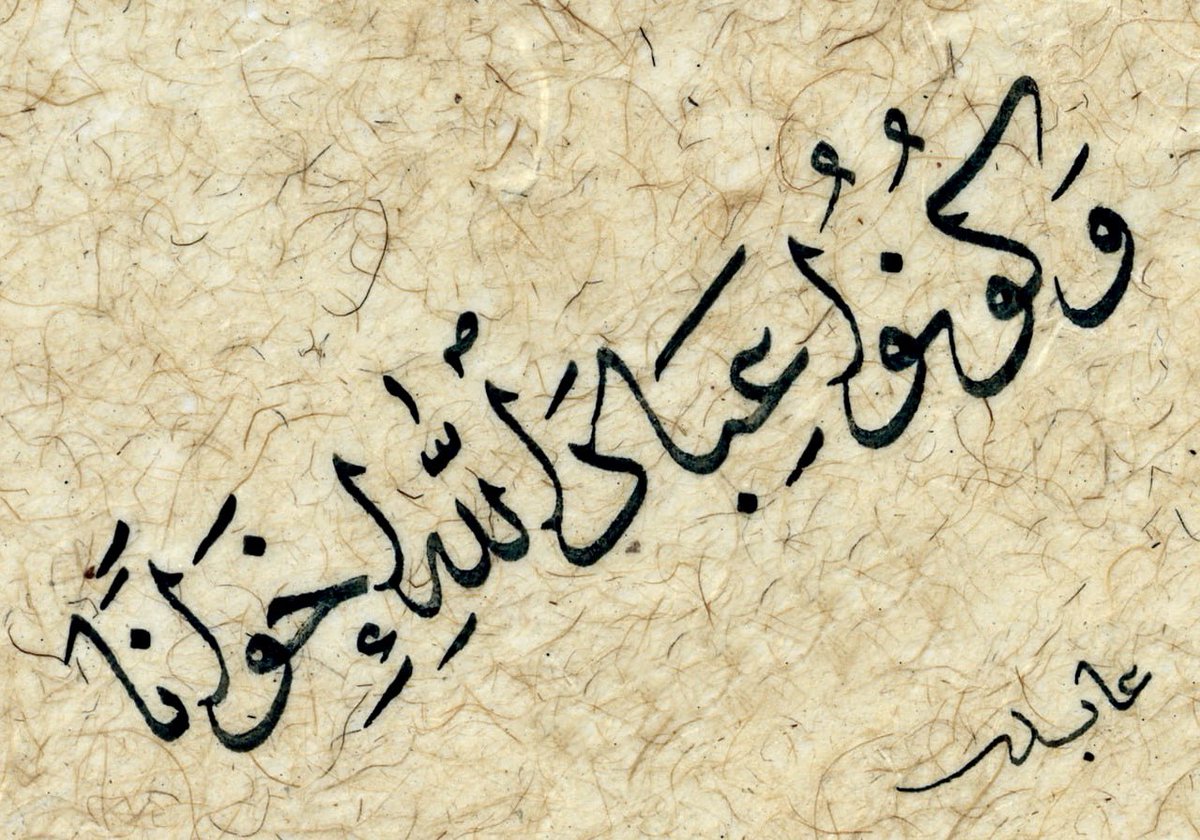 وَكُونُوا عِبَادَ اللَّهِ إِخْوَانًا